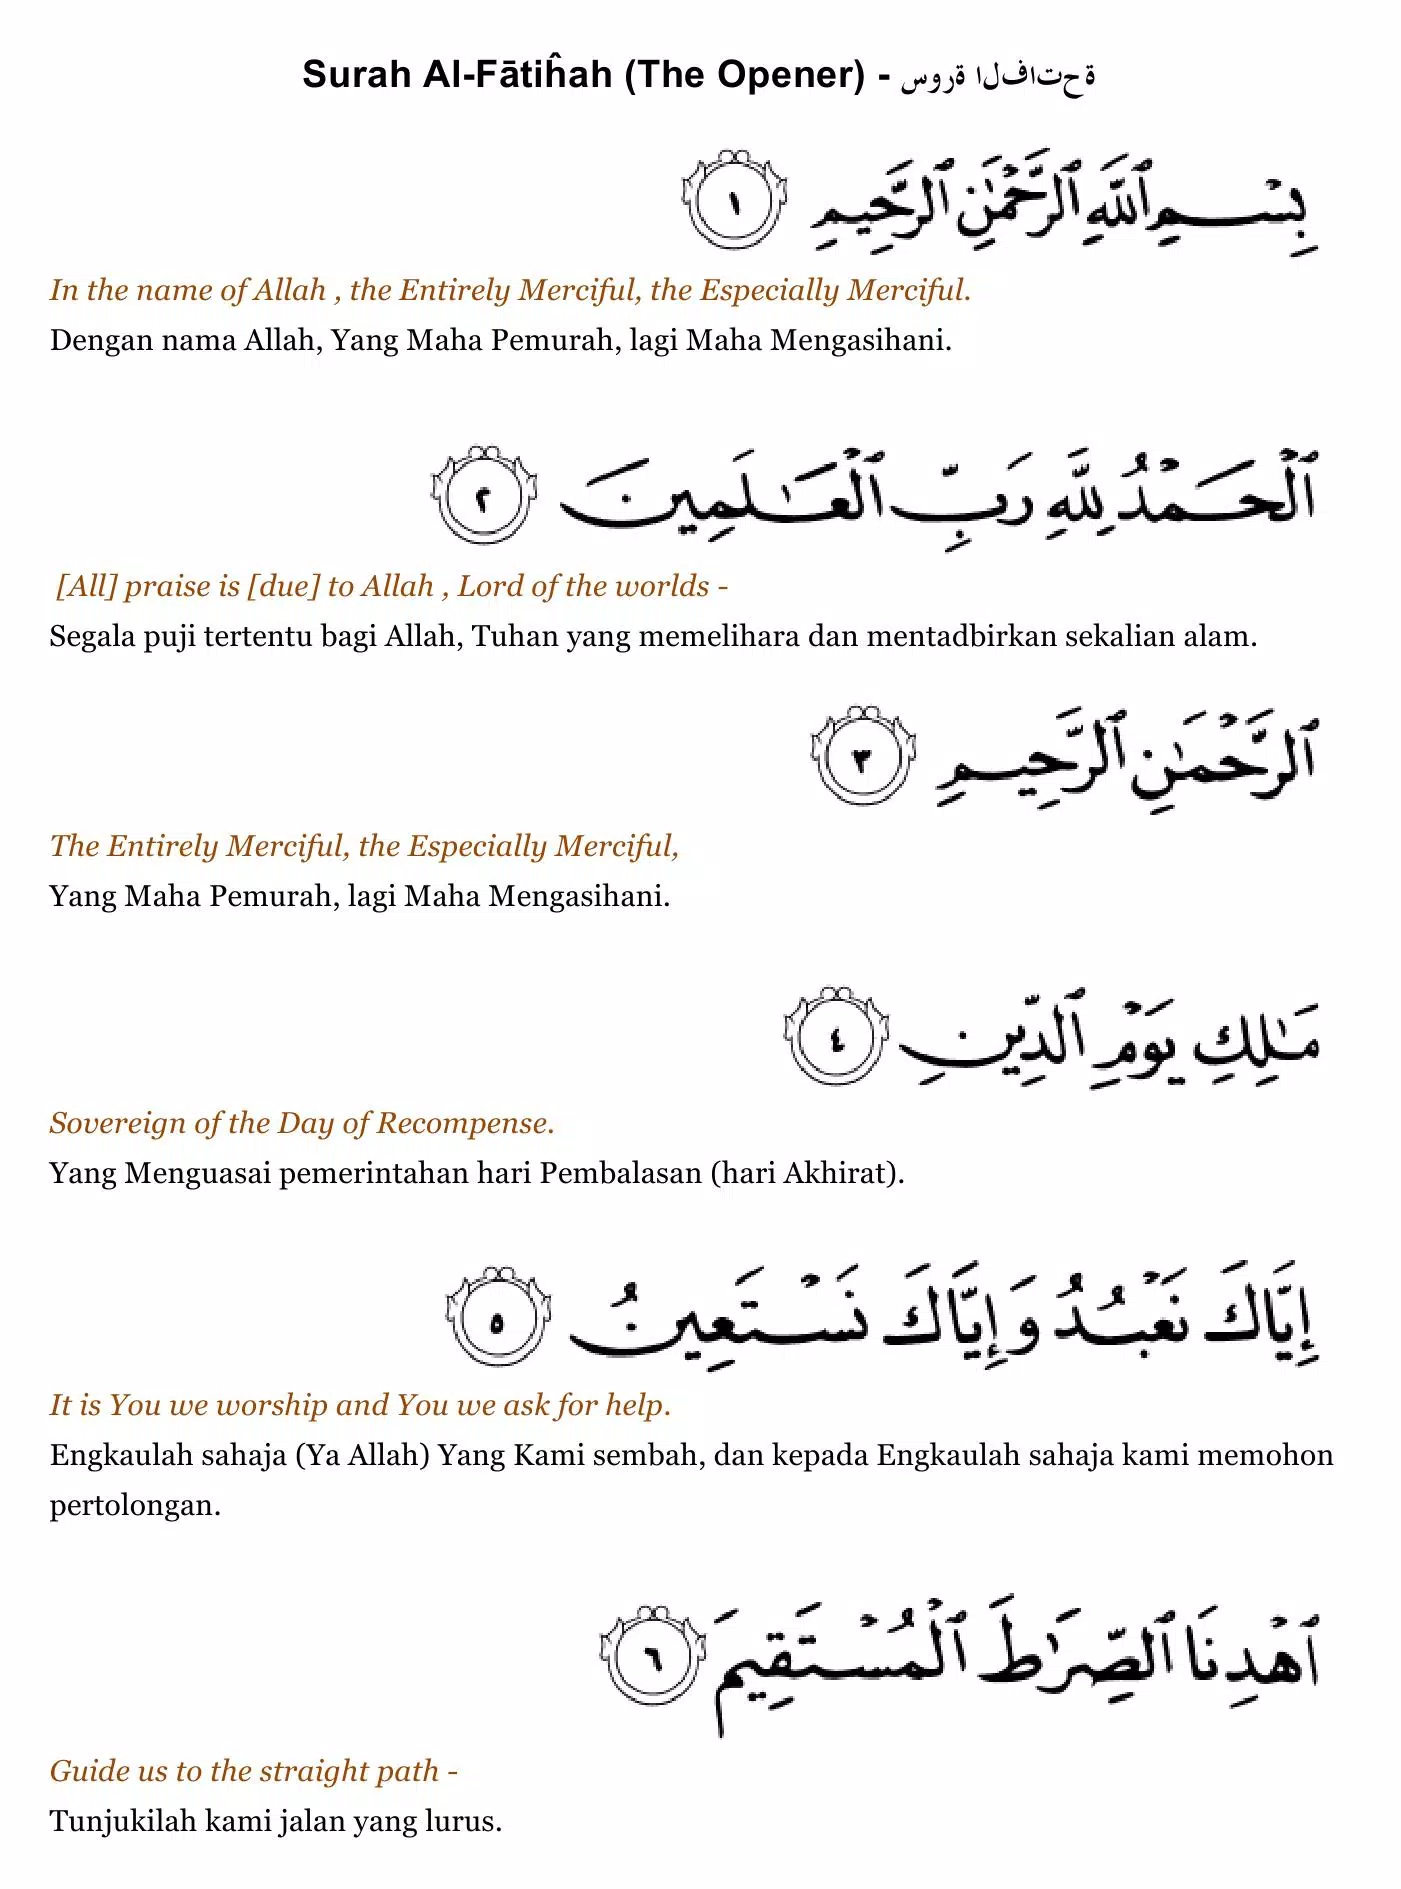 Surah Al-Fātiĥah (The Opener) - سورة الفاتحة
بِسْمِ ٱللَّهِ ٱلرَّحْمَٰنِ ٱلرَّحِيمِ ١
In the name of Allah , the Entirely Merciful, the Especially Merciful.
Dengan nama Allah, Yang Maha Pemurah, lagi Maha Mengasihani.
ٱلْحَمْدُ لِلَّهِ رَبِّ ٱلْعَٰلَمِينَ ٢
[All] praise is [due] to Allah , Lord of the worlds -
Segala puji tertentu bagi Allah, Tuhan yang memelihara dan mentadbirkan sekalian alam.
ٱلرَّحْمَٰنِ ٱلرَّحِيمِ ٣
The Entirely Merciful, the Especially Merciful,
Yang Maha Pemurah, lagi Maha Mengasihani.
مَٰلِكِ يَوْمِ ٱلدِّينِ ٤
Sovereign of the Day of Recompense.
Yang Menguasai pemerintahan hari Pembalasan (hari Akhirat).
إِيَّاكَ نَعْبُدُ وَإِيَّاكَ نَسْتَعِينُ ٥
It is You we worship and You we ask for help.
Engkaulah sahaja (Ya Allah) Yang Kami sembah, dan kepada Engkaulah sahaja kami memohon
pertolongan.
ٱهْدِنَا ٱلصِّرَٰطَ ٱلْمُسْتَقِيمَ ٦
Guide us to the straight path -
Tunjukilah kami jalan yang lurus.